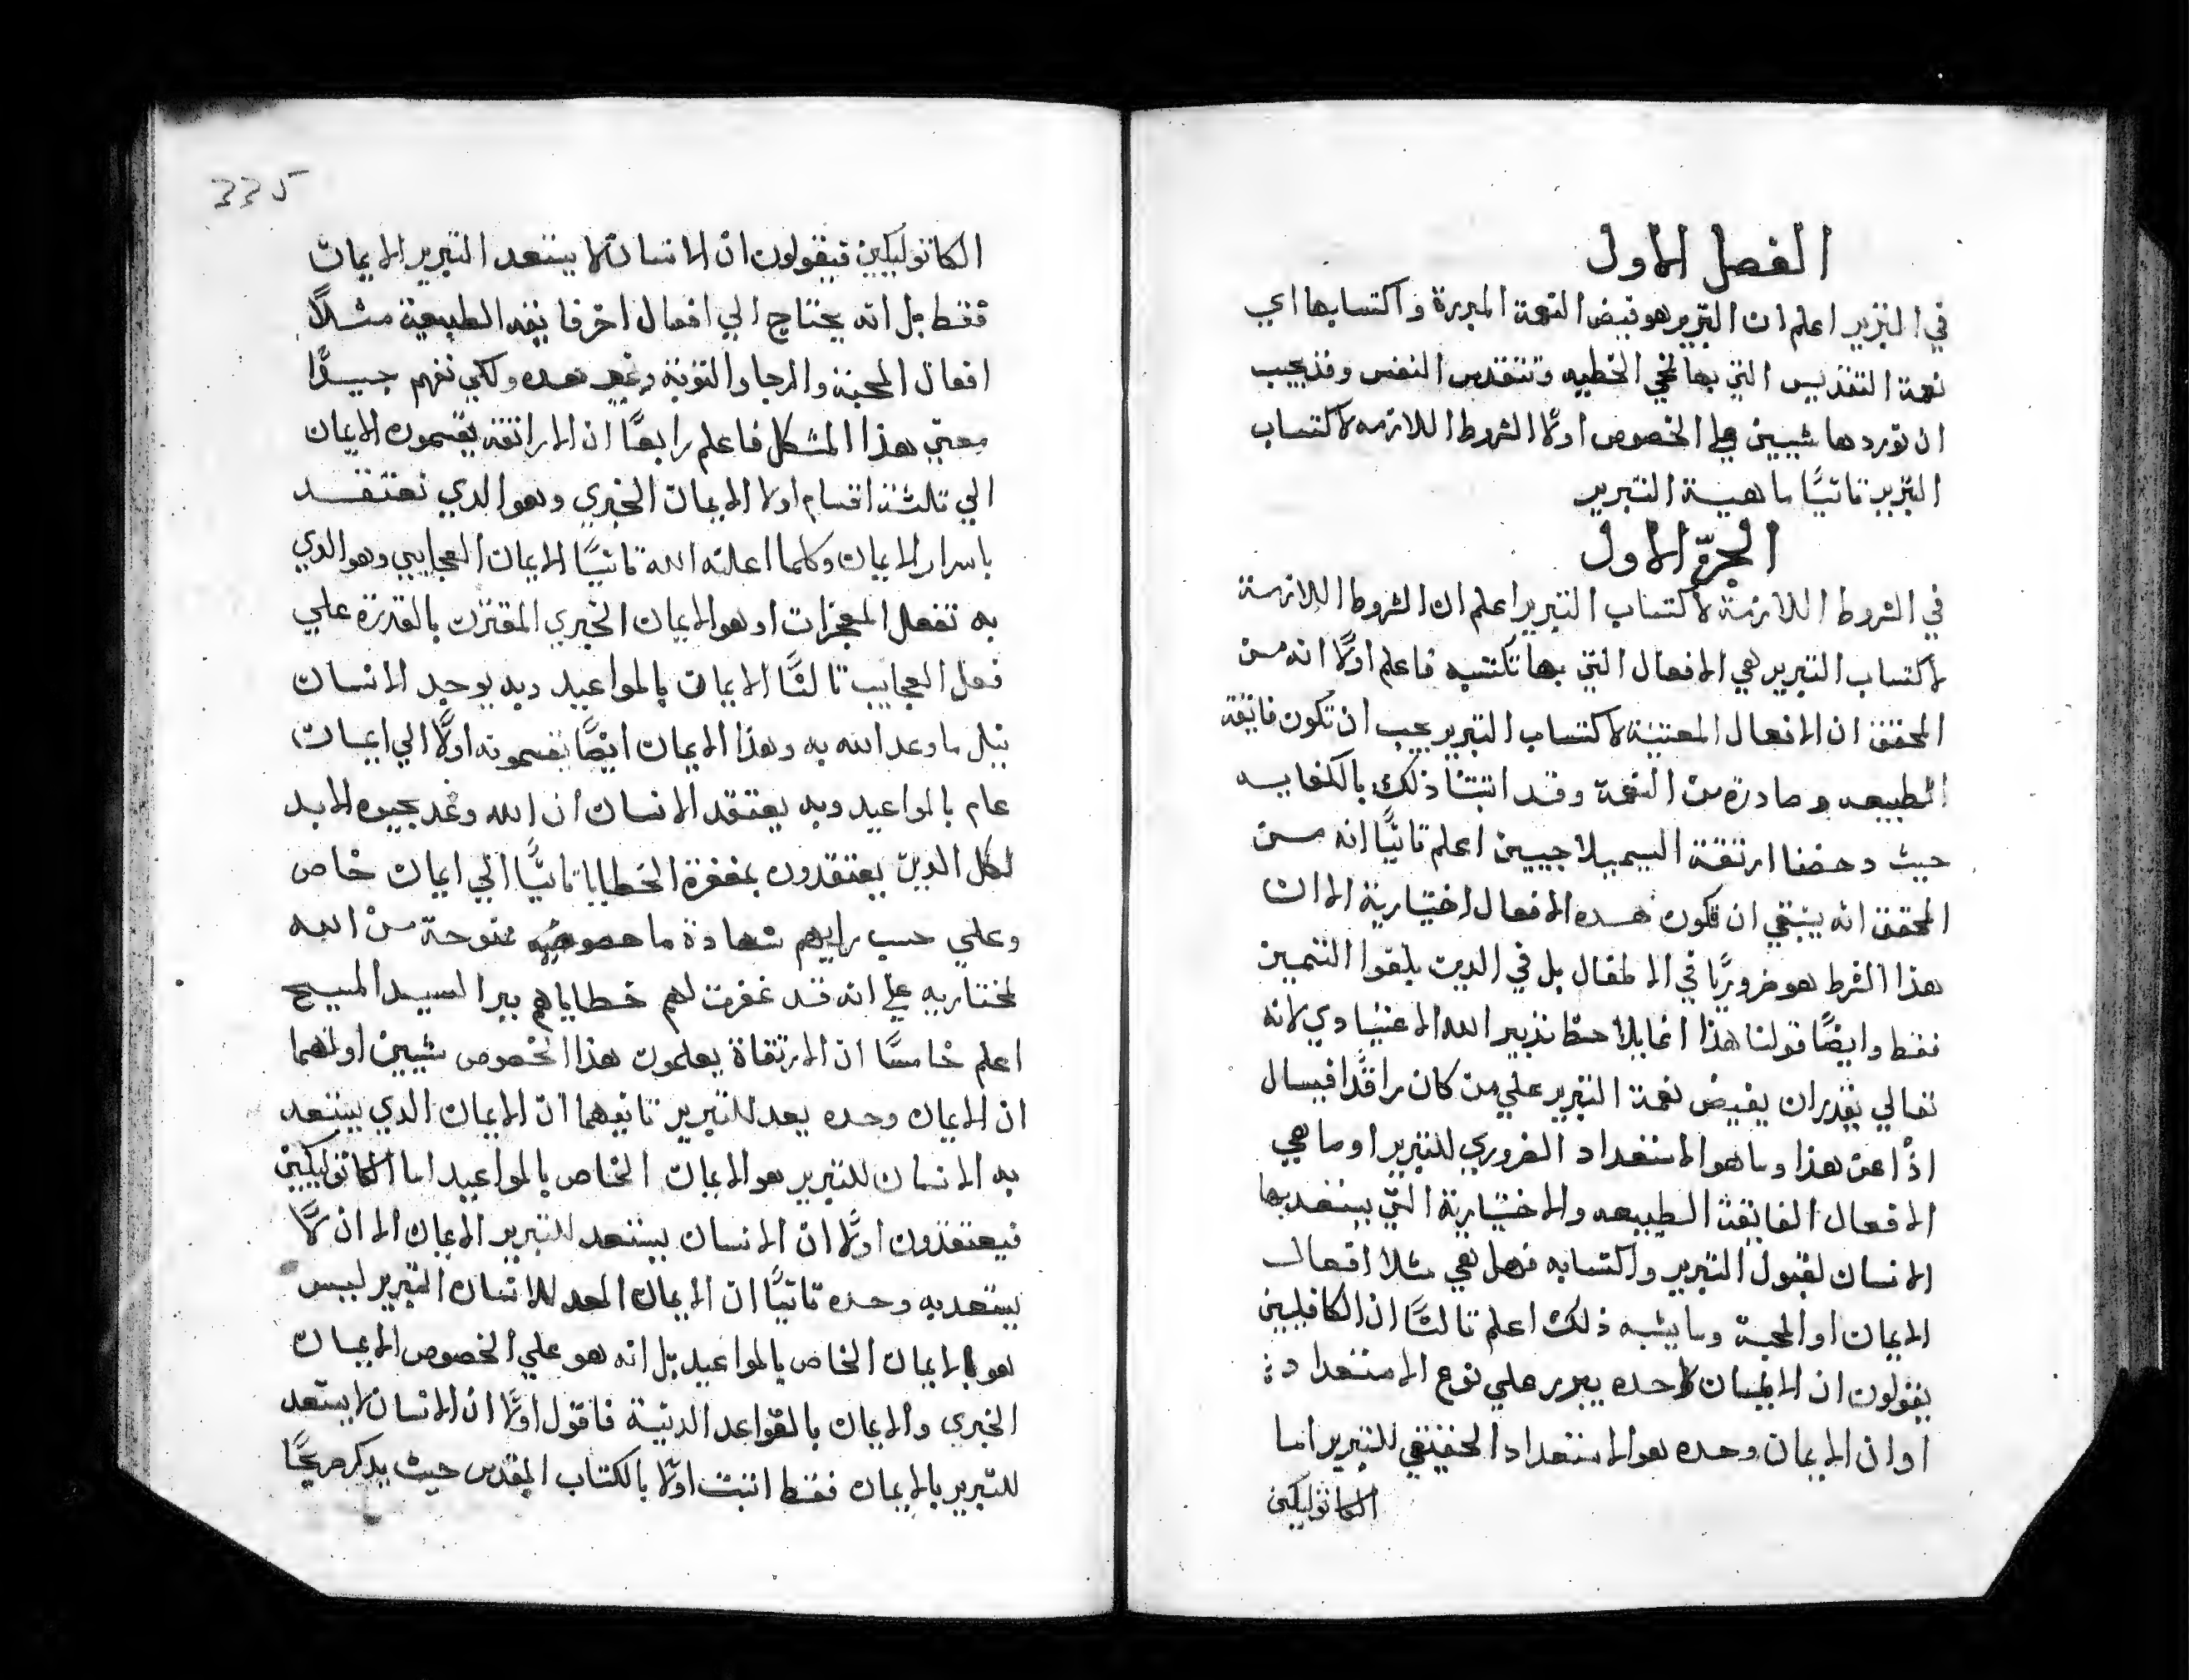 الفصل الاول
في التبرير اعلم ان التبرير هو فيض النعمة المبررة واكتسابها اي
نعمة التقديس التي بها تمحي الخطيه وتتقدس النفس وقد يجب
ان نورد ها شيين علي الخصوص اولًا الشروط اللازمه لاكتساب
التبرير ثانيًا ماهية التبرير
الجزء الاول
في الشروط اللازمة لاكتساب التبرير اعلم ان الشروط اللازمة
لاكتساب التبرير هي الافعال التي بها تكتسبه فاعلم اولًا انه من
المحقق ان الافعال المعتنية لاكتساب التبرير يجب ان تكون فايقة
الطبيعه وصادرة من النعمة وقد اثبتنا ذلك بالكفايه
حيث دحضنا ارتقة البيمبيلاجيين اعلم ثانيًا انه من
المحقق انه ينبغي ان تكون هده الافعال اختيارية الا ان
هذا الشرط هو ضروريًا في الاطفال بل في الدين بلغوا التمييز
فقط وايضًا قولنا هذا انما يلاحظ تدبير الله الاعتيادي لانه
تعالي يقدر ان يفيض نعمة التبرير علي من كان راقدًا فيسال
اذًا عن هذا وما هو الاستعداد الضروري للتبرير او ما هي
الافعال الفايقة الطبيعه والاختيارية التي يستعد بها
الانسان لقبول التبرير واكتسابه فهل هي مثلا افعال
الايمان او المحبة وما يشبه ذلك اعلم ثالثًا ان الكافليين
يقولون ان الايمان لاحده يبرر علي نوع الاستعداد
او ان الايمان وحده هو الاستعداد الحقيقي للتبرير اما
الكاثوليكين
335
الكاثوليكين فيقولون ان الانسان لا يستعد التبرير الايمان
فقط بل انه يحتاج الي افعال اخر فايقه الطبيعة مثلًا
افعال المحبة والرجا والتوبة وغير هده ولكي نفهم جيدًا
معني هذا المشكل فاعلم رابعًا ان الاراتقة يقسمون الايمان
الي ثلثة اقسام اولا الايمان الخبري وهو الدي نعتقد
باسرار الايمان وكلما اعلنه الله ثانيًا الايمان العجايبي وهو الدي
به تفعل المعجزات او هو الايمان الخبري المقترن بالقدرة علي
فعل العجايب ثالثًا الايمان بالمواعيد وبه يوحيد الانسان
بنيل ما وعد الله به وهذا الايمان ايضًا يقسمونه اولًا الي ايمان
عام بالمواعيد وبه يعتقد الانسان ان الله وعد بحيوه الابد
لكل الدين يعتقدون بمغفرة الخطايا ثانيًا الي ايمان خاص
وعلي حسب رايهم شهادة ما خصوصيه ممنوحة من الله
لمختاريه علي انه قد غفرت لهم خطاياهم ببر السيد المسيح
اعلم خامسًا ان الارتقاة يعلمون هذا الخصوص شيين اولهما
ان الايمان وحده يعد للتبرير ثانيهما ان الايمان الدي يستعد
به الانسان للتبرير هو الايمان الخاص بالمواعيد اما الكاثوليكيين
فيعتقدون اولًا ان الانسان يستعد للتبرير الايمان الا ان لا
يستعد به وحده ثانيًا ان الايمان المعد للانسان التبرير ليس
هو بالايمان الخاص بالمواعيد بل انه هو علي الخصوص الايمان
الخبري والايمان بالقواعد الدينية فاقول اولًا ان الانسان لا يستعد
للتبرير بالايمان فقط اثبت اولًا بالكتاب المقدس حيث يدكر صريحًا